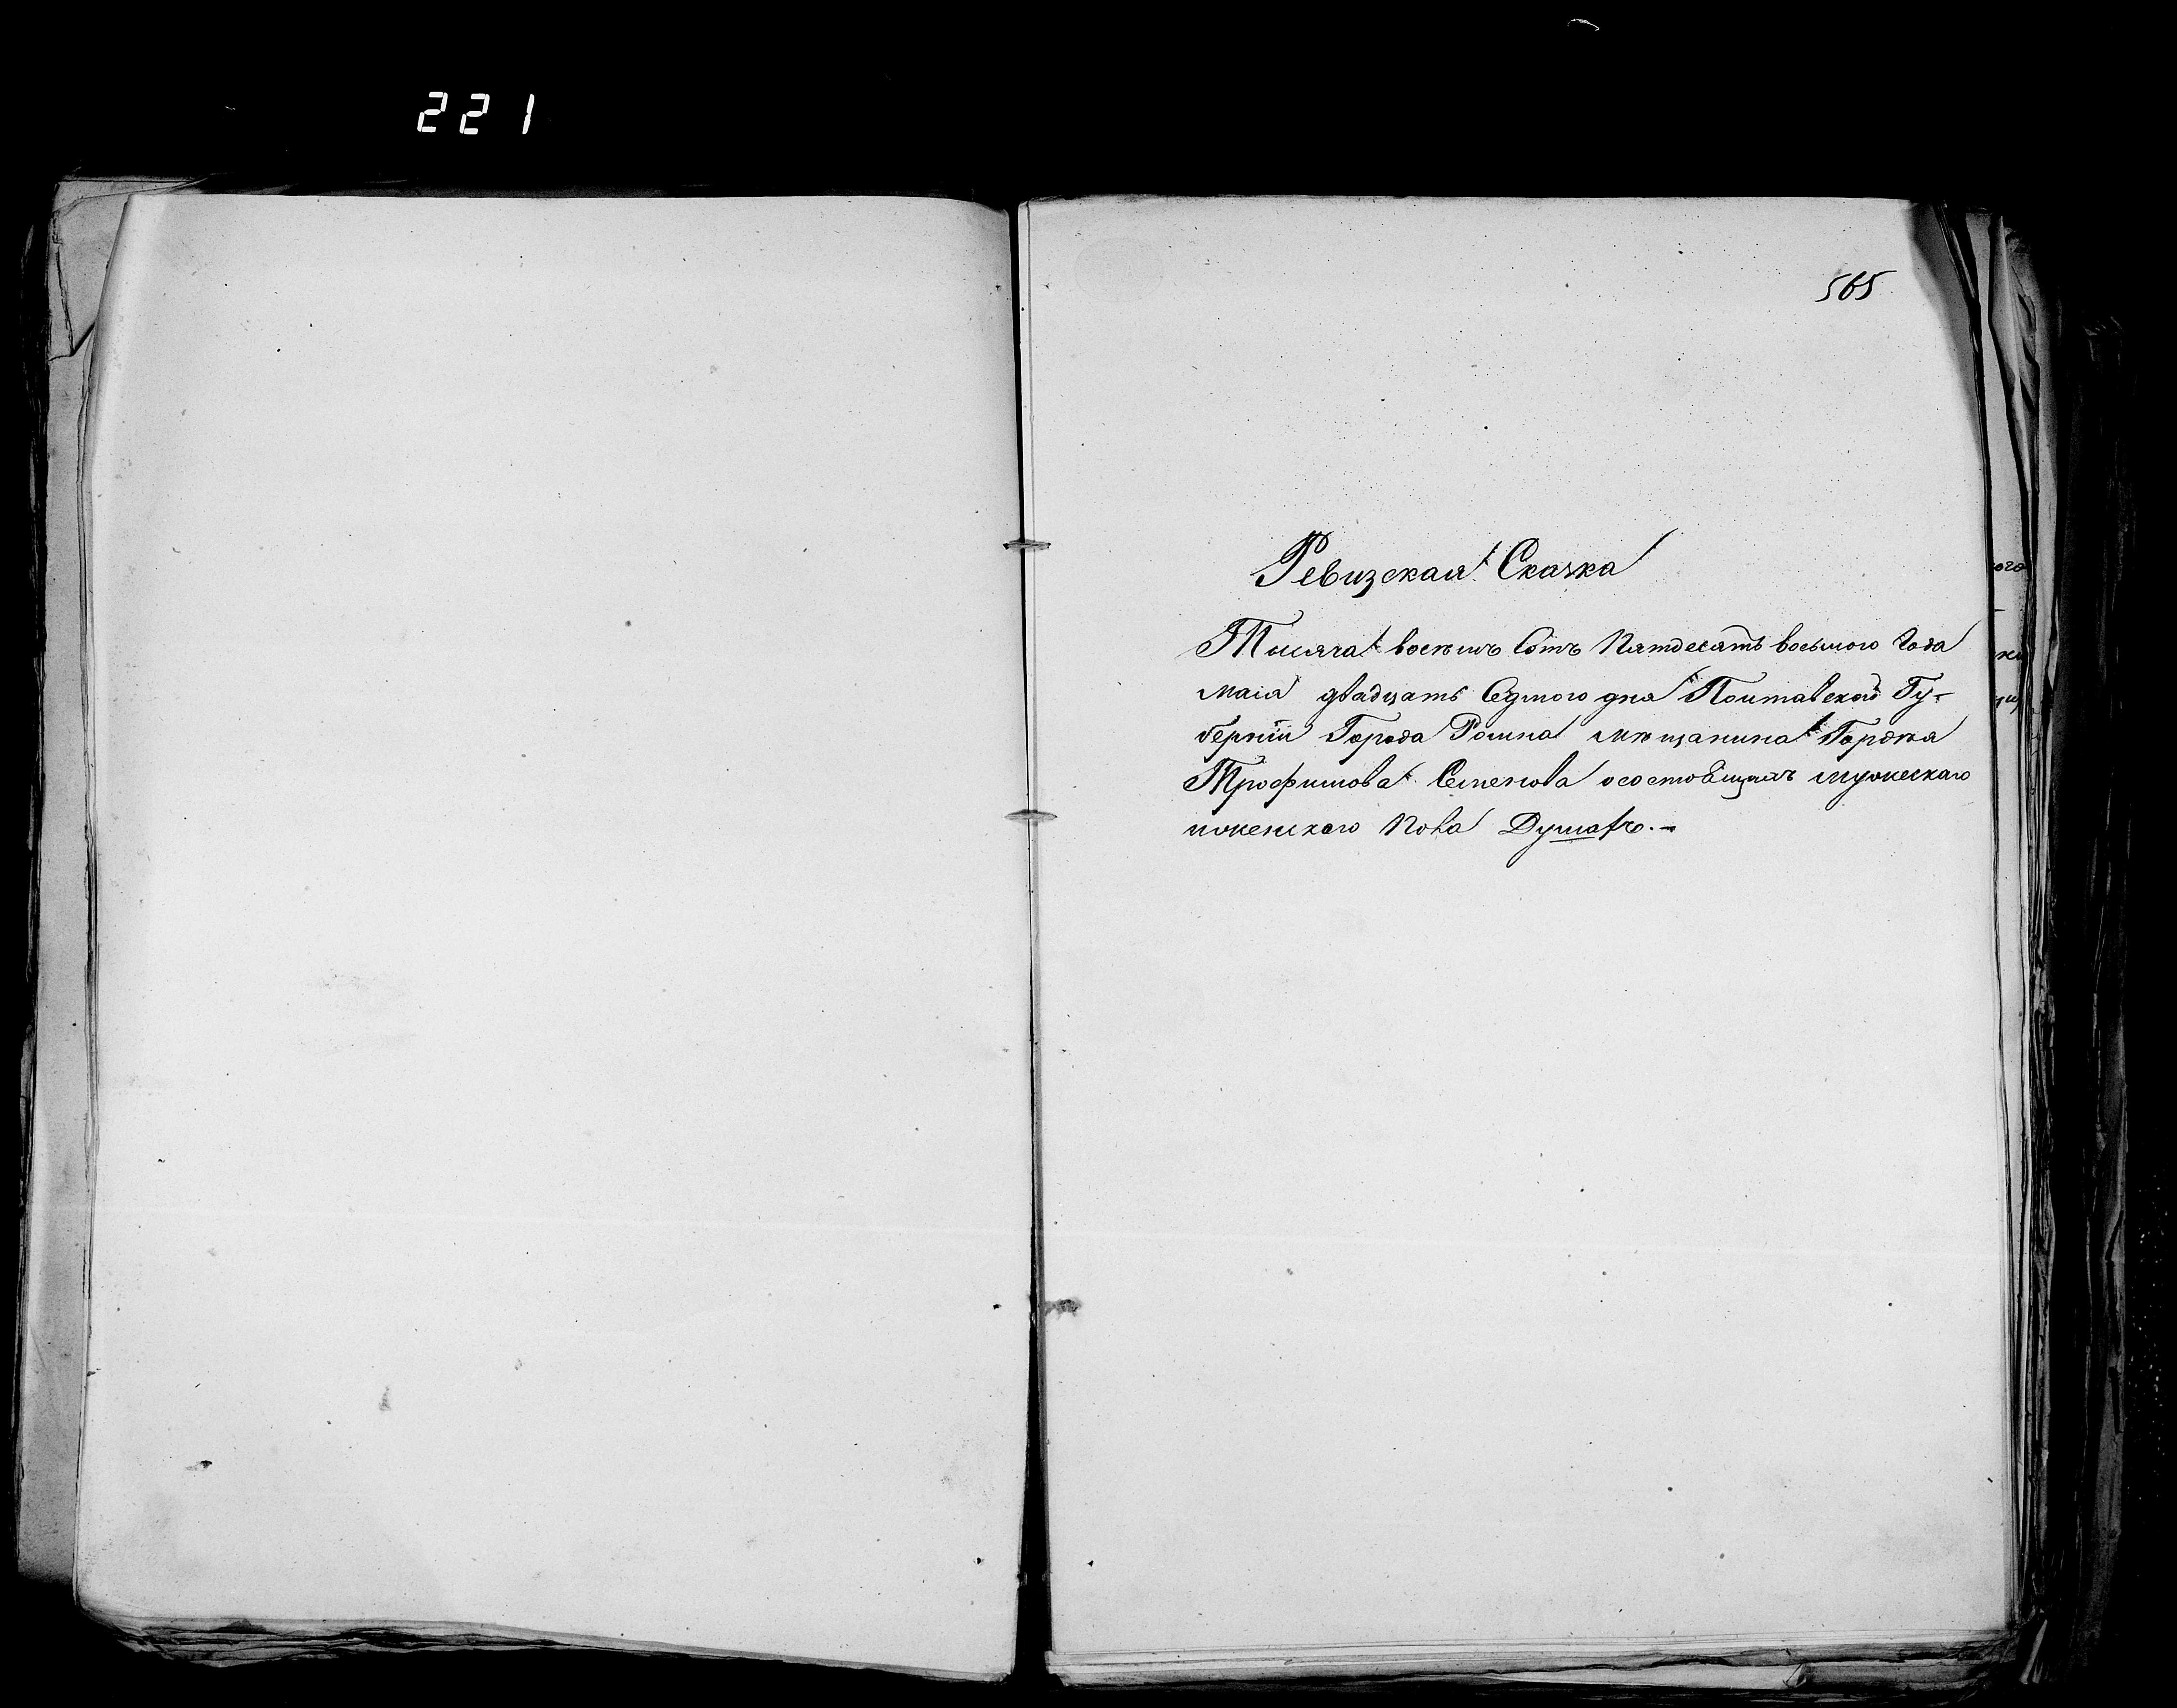 221
565
Ревизская Сказка
Тысяча восемъ Сотъ Пятдесятъ восьмого Года
маія двадцать Седмого дня Полтавской Гу-
берніи Города Ромна мѣщанина Гордѣя
Трофимова Семенова осостоящихъ мужескаго
иженскаго Пола Душахъ.-
ого